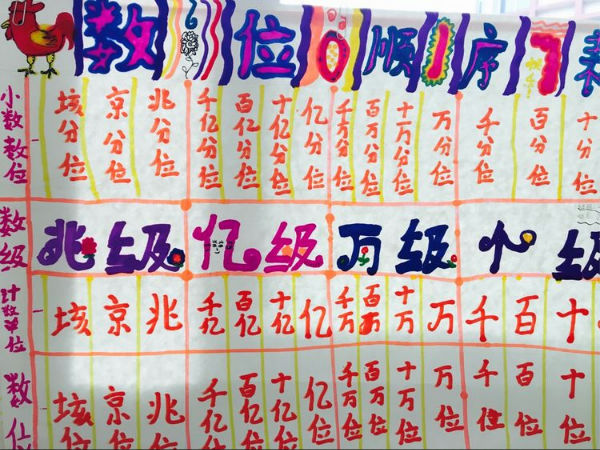 数位0顺1序7表
小数数位 垓分位 京分位 兆分位 千亿分位 百亿分位 十亿分位 亿分位 千万分位 百万分位 十万分位 万分位 千分位 百分位 十分位
数级 兆级 亿级 万级 个级
计数单位 垓 京 兆 千亿 百亿 十亿 亿 千万 百万 十万 万 千 百 十
数位 垓位 京位 兆位 千亿位 百亿位 十亿位 亿位 千万位 百万位 十万位 万位 千位 百位 十位